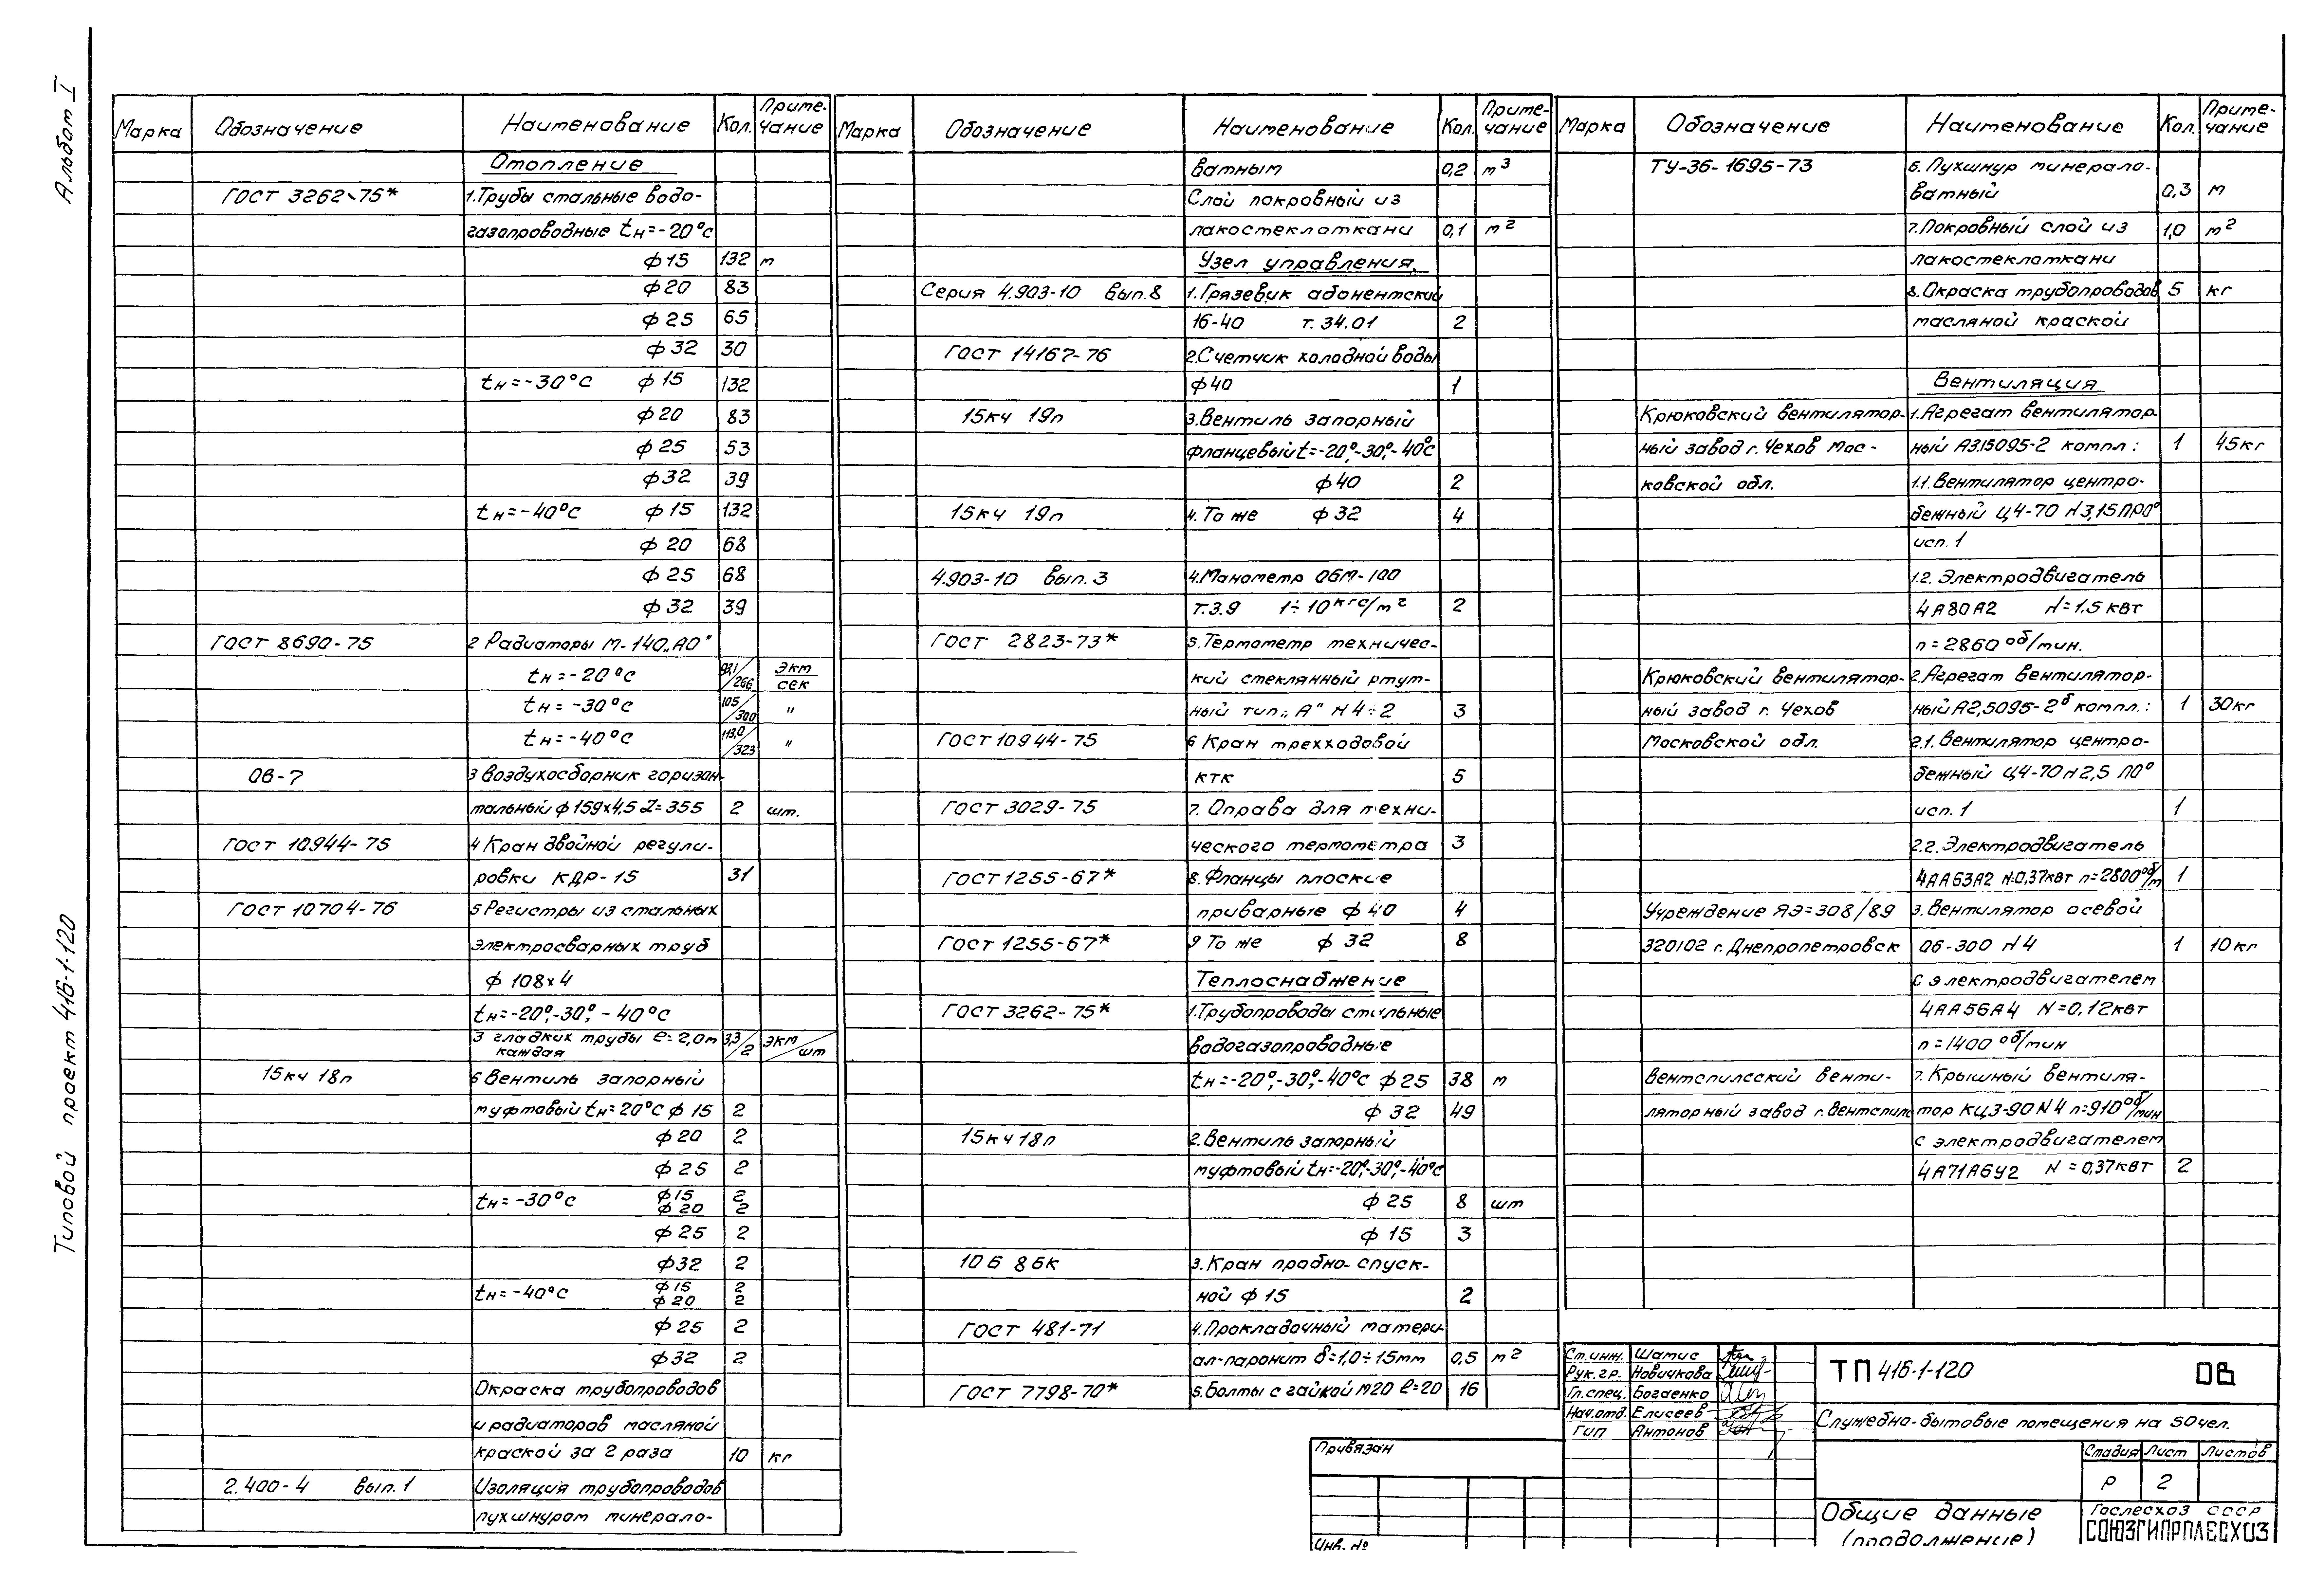 Альбом I
Типовой проект 416-1-120
Марка Обозначение Наименование Кол. Приме-чание
Отопление
ГОСТ 3262-75* 1.Трубы стальные водо-
газопроводные tн=-20°С
ф15 132 м
ф20 83
ф25 65
ф32 30
tн=-30°С ф15 132
ф20 83
ф25 53
ф32 39
tн=-40°С ф15 132
ф20 68
ф25 68
ф32 39
ГОСТ 8690-75 2 Радиаторы М-140„АО"
tн=-20°С /266 экт/сек
tн=-30°С 105/300 "
tн=-40°С 113,0/323 "
ОВ-7 3 Воздухосборник горизон-
тальный ф159х4,5 L=355 2 шт.
ГОСТ 10944-75 4 Кран двойной регули-
ровки КДР-15 31
ГОСТ 10704-76 5 Регистры из стальных
электросварных труб
ф 108х4
tн=-20°,-30°,-40°С
3 гладких трубы ℓ=2,0м каждая 3,3/2 экм/шт
15кч 18п 6 Вентиль запорный
муфтовый tн=20°С ф 15 2
ф20 2
ф25 2
tн=-30°С ф15 2
ф20 2
ф25 2
ф32 2
tн=-40°С ф15 2
ф20 2
ф25 2
ф32 2
Окраска трубопроводов
и радиаторов масляной
краской за 2 раза 10 кг
2.400-4 вып.1 Изоляция трубопроводов
пухшнуром минерало-
Марка Обозначение Наименование Кол. Приме-чание
ватным 0,2 м3
Слой покровный из
лакостеклоткани 0,1 м2
Узел управления.
Серия 4.903-10 вып.8 1.Грязевик абонентский
16-40 т.34.01 2
ГОСТ 14167-76 2.Счетчик холодной воды
ф40 1
15кч 19п 3.Вентиль запорный
фланцевый t=-20°,-30°,-40°С
ф40 2
15кч 19п 4.То же ф32 4
4.903-10 вып.3 4.Манометр ОБМ-100
т.3.9 1÷10кгс/м2 2
ГОСТ 2823-73* 5.Термометр техничес-
кий стеклянный ртут-
ный тип„А" N 4÷2 3
ГОСТ 10944-75 6 Кран трехходовой
КТК 5
ГОСТ 3029-75 7. Оправа для техни-
ческого термометра 3
ГОСТ 1255-67* 8.Фланцы плоские
приварные ф 40 4
ГОСТ 1255-67* 9 То же ф 32 8
Теплоснабжение
ГОСТ 3262-75* 1.Трубопроводы стальные
водогазопроводные
tн=-20°,-30°,-40°С ф25 38 м
ф32 49
15кч18п 2.Вентиль запорный
муфтовый tн=-20°,-30°,-40°С
ф25 8 шт
ф15 3
10Б 8бк 3.Кран пробно-спуск-
ной ф15 2
ГОСТ 481-71 4.Прокладочный матери-
ал-паронит δ=1,0÷15мм 0,5 м2
ГОСТ 7798-70* 5.Болты с гайкой М20 ℓ=20 16
Марка Обозначение Наименование Кол. Приме-чание
ТУ-36-1695-73 6.Пухшнур минерало-
ватный 0,3 м
7.Покровный слой из 1,0 м2
лакостеклоткани
8.Окраска трубопроводов 5 кг
масляной краской
Вентиляция
Крюковский вентилятор- 1.Агрегат вентилятор-
ный завод г. Чехов Мос- ный А3.15095-2 компл: 1 45кг
ковской обл. 1.1.Вентилятор центро-
бежный Ц4-70 N3,15 ПР0°
исп.1
1.2.Электродвигатель
4А80А2 N=1.5 квт
n=2860 об/мин.
Крюковский вентилятор- 2.Агрегат вентилятор-
ный завод г. Чехов ный А2,5095-2б компл.: 1 30кг
Московской обл. 2.1.Вентилятор центро-
бежный Ц4-70 N2,5 Л0°
исп.1 1
2.2.Электродвигатель
4АА63А2 N=0,37квт n=2800об/м 1
Учреждение ЯЭ-308/89 3.Вентилятор осевой
320102 г.Днепропетровск 06-300 N4 1 10кг
с электродвигателем
4АА56А4 N=0,12квт
n=1400 об/мин
Вентспилсский венти- 7.Крышный вентиля-
ляторный завод г.Вентспилс тор КЦ3-90 N4 n=910об/мин
с электродвигателем
4А71А6У2 N=0,37квт 2
Привязан
Инв. №
Ст.инж. Шатис
Рук.гр. Новичкова
Гл.спец. Богаенко
Нач.отд. Елисеев
ГИП Антонов
ТП 416-1-120 ОВ
Служебно-бытовые помещения на 50чел.
Стадия Лист Листов
Р 2
Общие данные
(продолжение)
Гослесхоз СССР
СОЮЗГИПРОЛЕСХОЗ